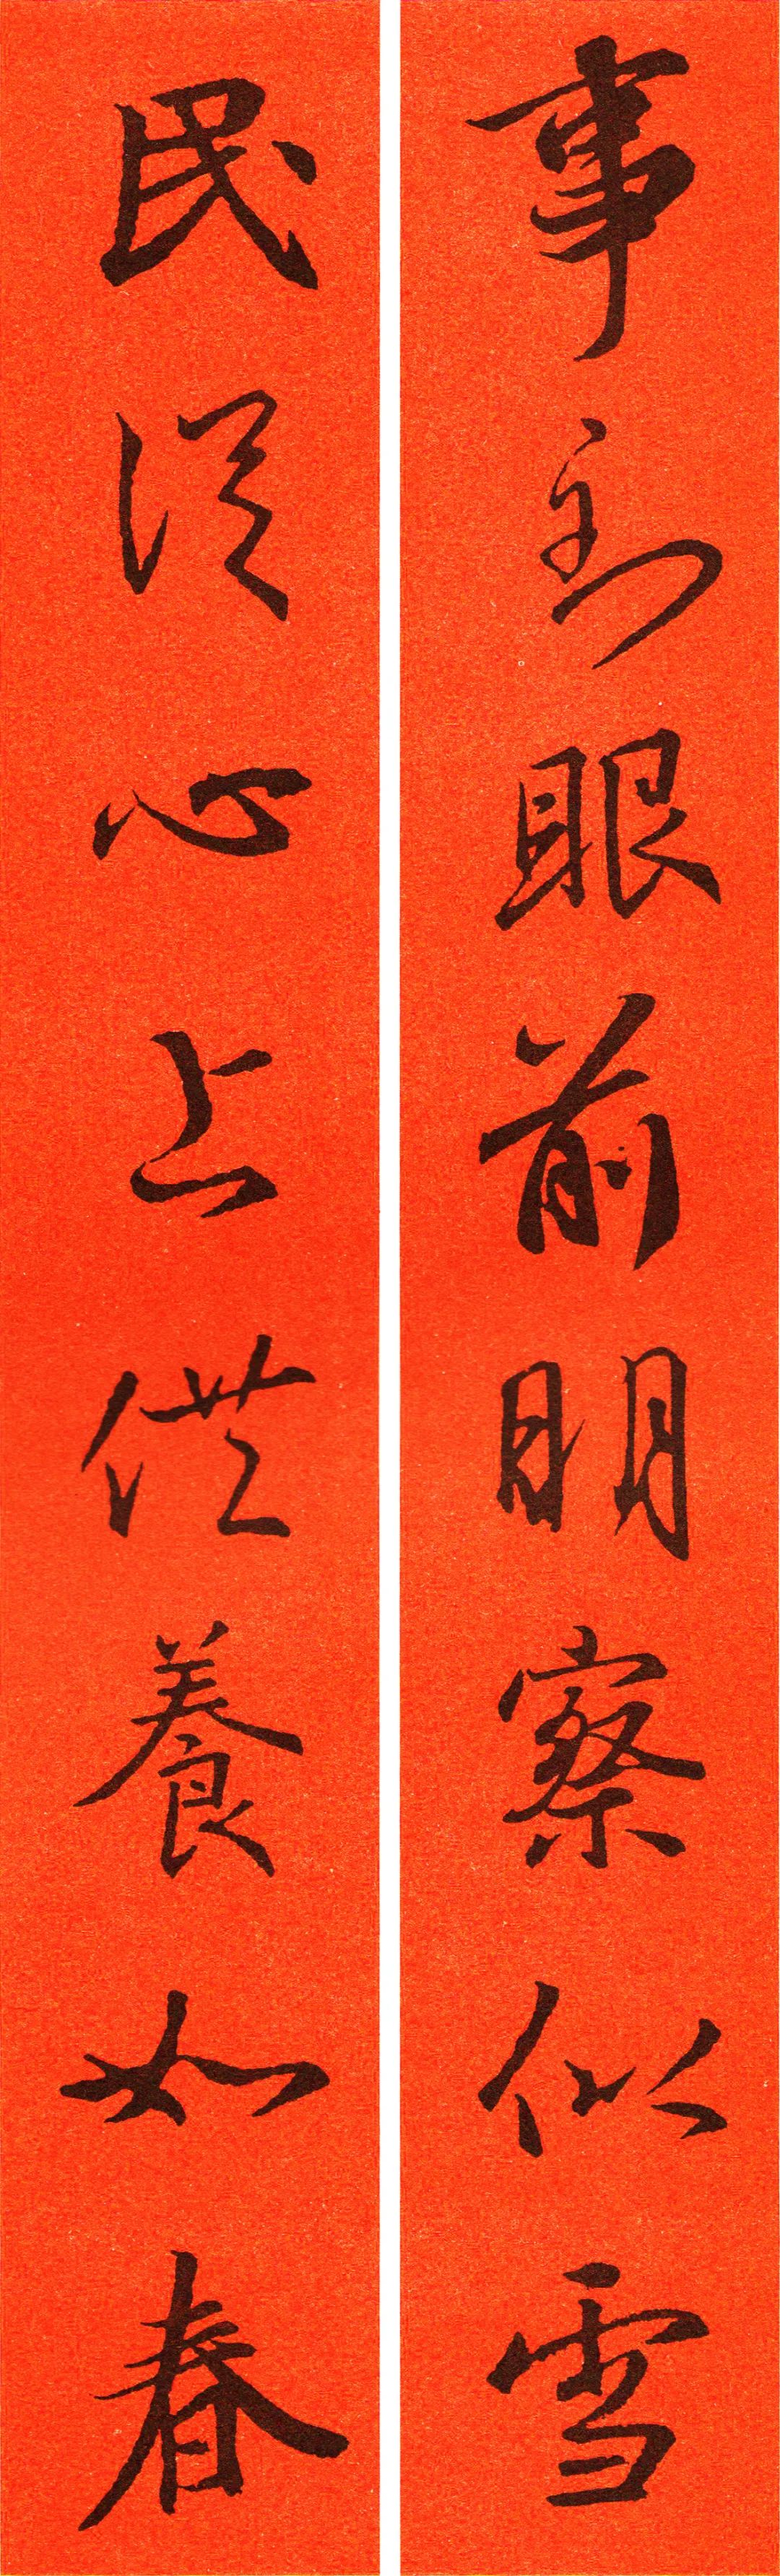 事到眼前明察似雪
民從心上供養如春